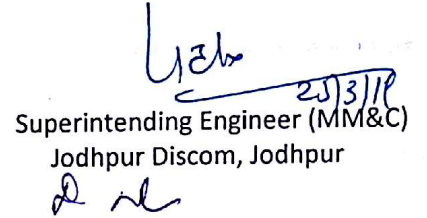 25/3/19
Superintending Engineer (MM&C)
Jodhpur Discom, Jodhpur